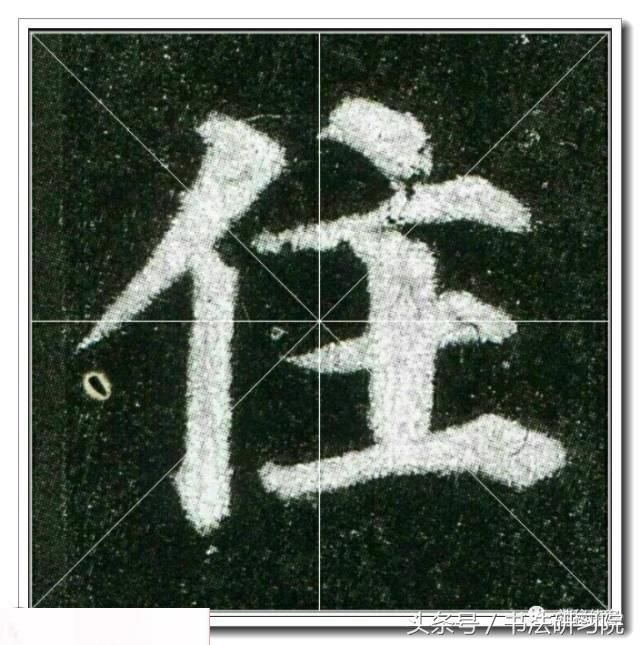 住
头条号 / 书法研习院